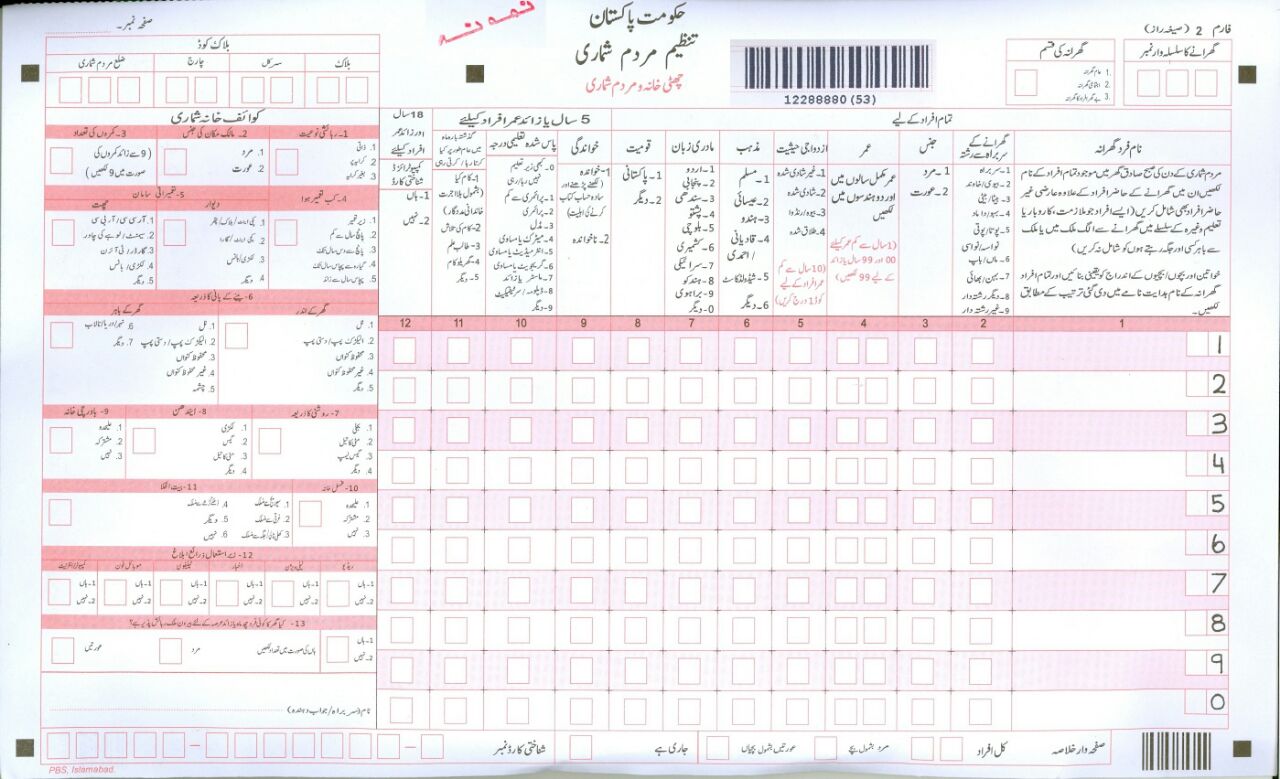 نمونہ
حکومت پاکستان
تنظیم مردم شماری
چھٹی خانہ و مردم شماری
12288880 (53)
فارم 2 (صیغہ راز)
گھرانے کا سلسلہ وار نمبر
گھرانہ کی قسم
1. عام گھرانہ
2. اجتماعی گھرانہ
3. بے گھر افراد کا گھرانہ
صفحہ نمبر۔
بلاک کوڈ
بلاک
سرکل
چارج
ضلع مردم شماری
تمام افراد کے لیے
5 سال یا زائد عمر افراد کیلئے
18 سال
اور زائد عمر
افراد کیلئے
کمپیوٹرائزڈ
شناختی کارڈ
1۔ ہاں
2۔ نہیں
نام فرد گھرانہ
مردم شماری کے دن کی صبح صادق گھر میں موجود تمام افراد کے نام
لکھیں ان میں گھرانے کے حاضر افراد کے علاوہ عارضی غیر
حاضر افراد بھی شامل کریں (ایسے افراد جو ملازمت، کاروبار یا
تعلیم وغیرہ کے سلسلہ میں گھرانے سے الگ ملک میں یا ملک
سے باہر کسی اور جگہ رہتے ہوں کو شامل نہ کریں)
خواتین اور بچوں/بچیوں کے اندراج کو یقینی بنائیں اور تمام افراد
گھرانہ کے نام ہدایت نامے میں دی گئی ترتیب کے مطابق
لکھیں۔
گھرانے کے
سربراہ سے رشتہ
1۔ سربراہ
2۔ بیوی/خاوند
3۔ بیٹا/بیٹی
4۔ بہو/داماد
5۔ پوتا/پوتی
نواسہ/نواسی
6۔ ماں/باپ
7۔ بہن/بھائی
8۔ دیگر رشتہ دار
9۔ غیر رشتہ دار
جنس
1۔ مرد
2۔ عورت
عمر
عمر مکمل سالوں میں
اور دو ہندسوں میں
لکھیں
(1 سال سے کم عمر کیلئے
00 اور 99 سال یا زائد
کے لیے 99 لکھیں)
ازدواجی حیثیت
1۔ غیر شادی شدہ
2۔ شادی شدہ
3۔ بیوہ/رنڈوا
4۔ طلاق شدہ
(10 سال سے کم
عمر افراد کے لیے
کوڈ 1 درج کریں)
مذہب
1۔ مسلم
2۔ عیسائی
3۔ ہندو
4۔ قادیانی
/احمدی
5۔ شیڈولڈ کاسٹ
6۔ دیگر
مادری زبان
1۔ اردو
2۔ پنجابی
3۔ سندھی
4۔ پشتو
5۔ بلوچی
6۔ کشمیری
7۔ سرائیکی
8۔ ہندکو
9۔ براہوی
0۔ دیگر
قومیت
1۔ پاکستانی
2۔ دیگر
خواندگی
1۔ خواندہ
(لکھنے پڑھنے اور
سادہ حساب کتاب
کرنے کی اہلیت)
2۔ ناخواندہ
پاس شدہ تعلیمی درجہ
0۔ کبھی زیر تعلیم
نہیں رہا/رہی
1۔ پرائمری سے کم
2۔ پرائمری
3۔ مڈل
4۔ میٹرک یا مساوی
5۔ انٹرمیڈیٹ یا مساوی
6۔ گریجویٹ یا مساوی
7۔ ماسٹر یا زائد
8۔ ڈپلومہ/سرٹیفکیٹ
9۔ دیگر
گذشتہ بارہ ماہ
میں عام طور پر کیا
کرتا رہا/کرتی رہی
1۔ کام کیا
(بشمول بلا اجرت
خاندانی مددگار)
2۔ کام کی تلاش
3۔ طالب علم
4۔ گھریلو کام
5۔ دیگر
1 2 3 4 5 6 7 8 9 10 11 12
1
2
3
4
5
6
7
8
9
0
کوائف خانہ شماری
1۔ رہائشی نوعیت
1. ذاتی
2. کرایہ پر
3. بغیر کرایہ
2۔ مالک مکان کی جنس
1. مرد
2. عورت
3۔ کمروں کی تعداد
(9 سے زائد کمروں کی
صورت میں 9 لکھیں)
4۔ کب تعمیر ہوا
1. زیر تعمیر
2. پانچ سال سے کم
3. پانچ سے دس سال تک
4. گیارہ سے پچاس سال تک
5. پچاس سال سے زائد
5۔ تعمیراتی سامان
دیوار
1. پکی اینٹ/بلاک/پتھر
2. کچی اینٹ/گارا
3. لکڑی/بانس
4. دیگر
چھت
1. آر سی سی/آر بی سی
2. سیمنٹ/لوہے کی چادر
3. گارڈر/ٹی آئرن
4. لکڑی/بانس
5. دیگر
6۔ پینے کے پانی کا ذریعہ
گھر کے اندر
1. نل
2. الیکٹرک پمپ/دستی پمپ
3. محفوظ کنواں
4. غیر محفوظ کنواں
5. دیگر
گھر کے باہر
1. نل
2. الیکٹرک پمپ/دستی پمپ
3. محفوظ کنواں
4. غیر محفوظ کنواں
5. چشمہ
6. نہر/دریا/تالاب
7. دیگر
7۔ روشنی کا ذریعہ
1. بجلی
2. مٹی کا تیل
3. گیس لیمپ
4. دیگر
8۔ ایندھن
1. لکڑی
2. گیس
3. مٹی کا تیل
4. دیگر
9۔ باورچی خانہ
1. علیحدہ
2. مشترکہ
3. نہیں
10۔ غسل خانہ
1. علیحدہ
2. مشترکہ
3. نہیں
11۔ بیت الخلا
1. سیوریج سے منسلک
5. دیگر
6. نہیں
12۔ زیر استعمال ذرائع ابلاغ
ریڈیو
ٹیلی ویژن
اخبار
ٹیلیفون
موبائل فون
کمپیوٹر/انٹرنیٹ
1۔ ہاں 1۔ ہاں 1۔ ہاں 1۔ ہاں 1۔ ہاں 1۔ ہاں
2۔ نہیں 2۔ نہیں 2۔ نہیں 2۔ نہیں 2۔ نہیں 2۔ نہیں
13۔ کیا گھر کا کوئی فرد چھ ماہ یا زائد عرصہ کے لئے بیرون ملک رہائش پذیر ہے؟
1۔ ہاں
2۔ نہیں
ہاں کی صورت میں تعداد لکھیں
مرد
عورتیں
نام (سربراہ/جواب دہندہ)
صفحہ وار خلاصہ
کل افراد
مرد بشمول بچے
عورتیں بشمول بچیاں
جاری ہے
شناختی کارڈ نمبر
PBS, Islamabad.